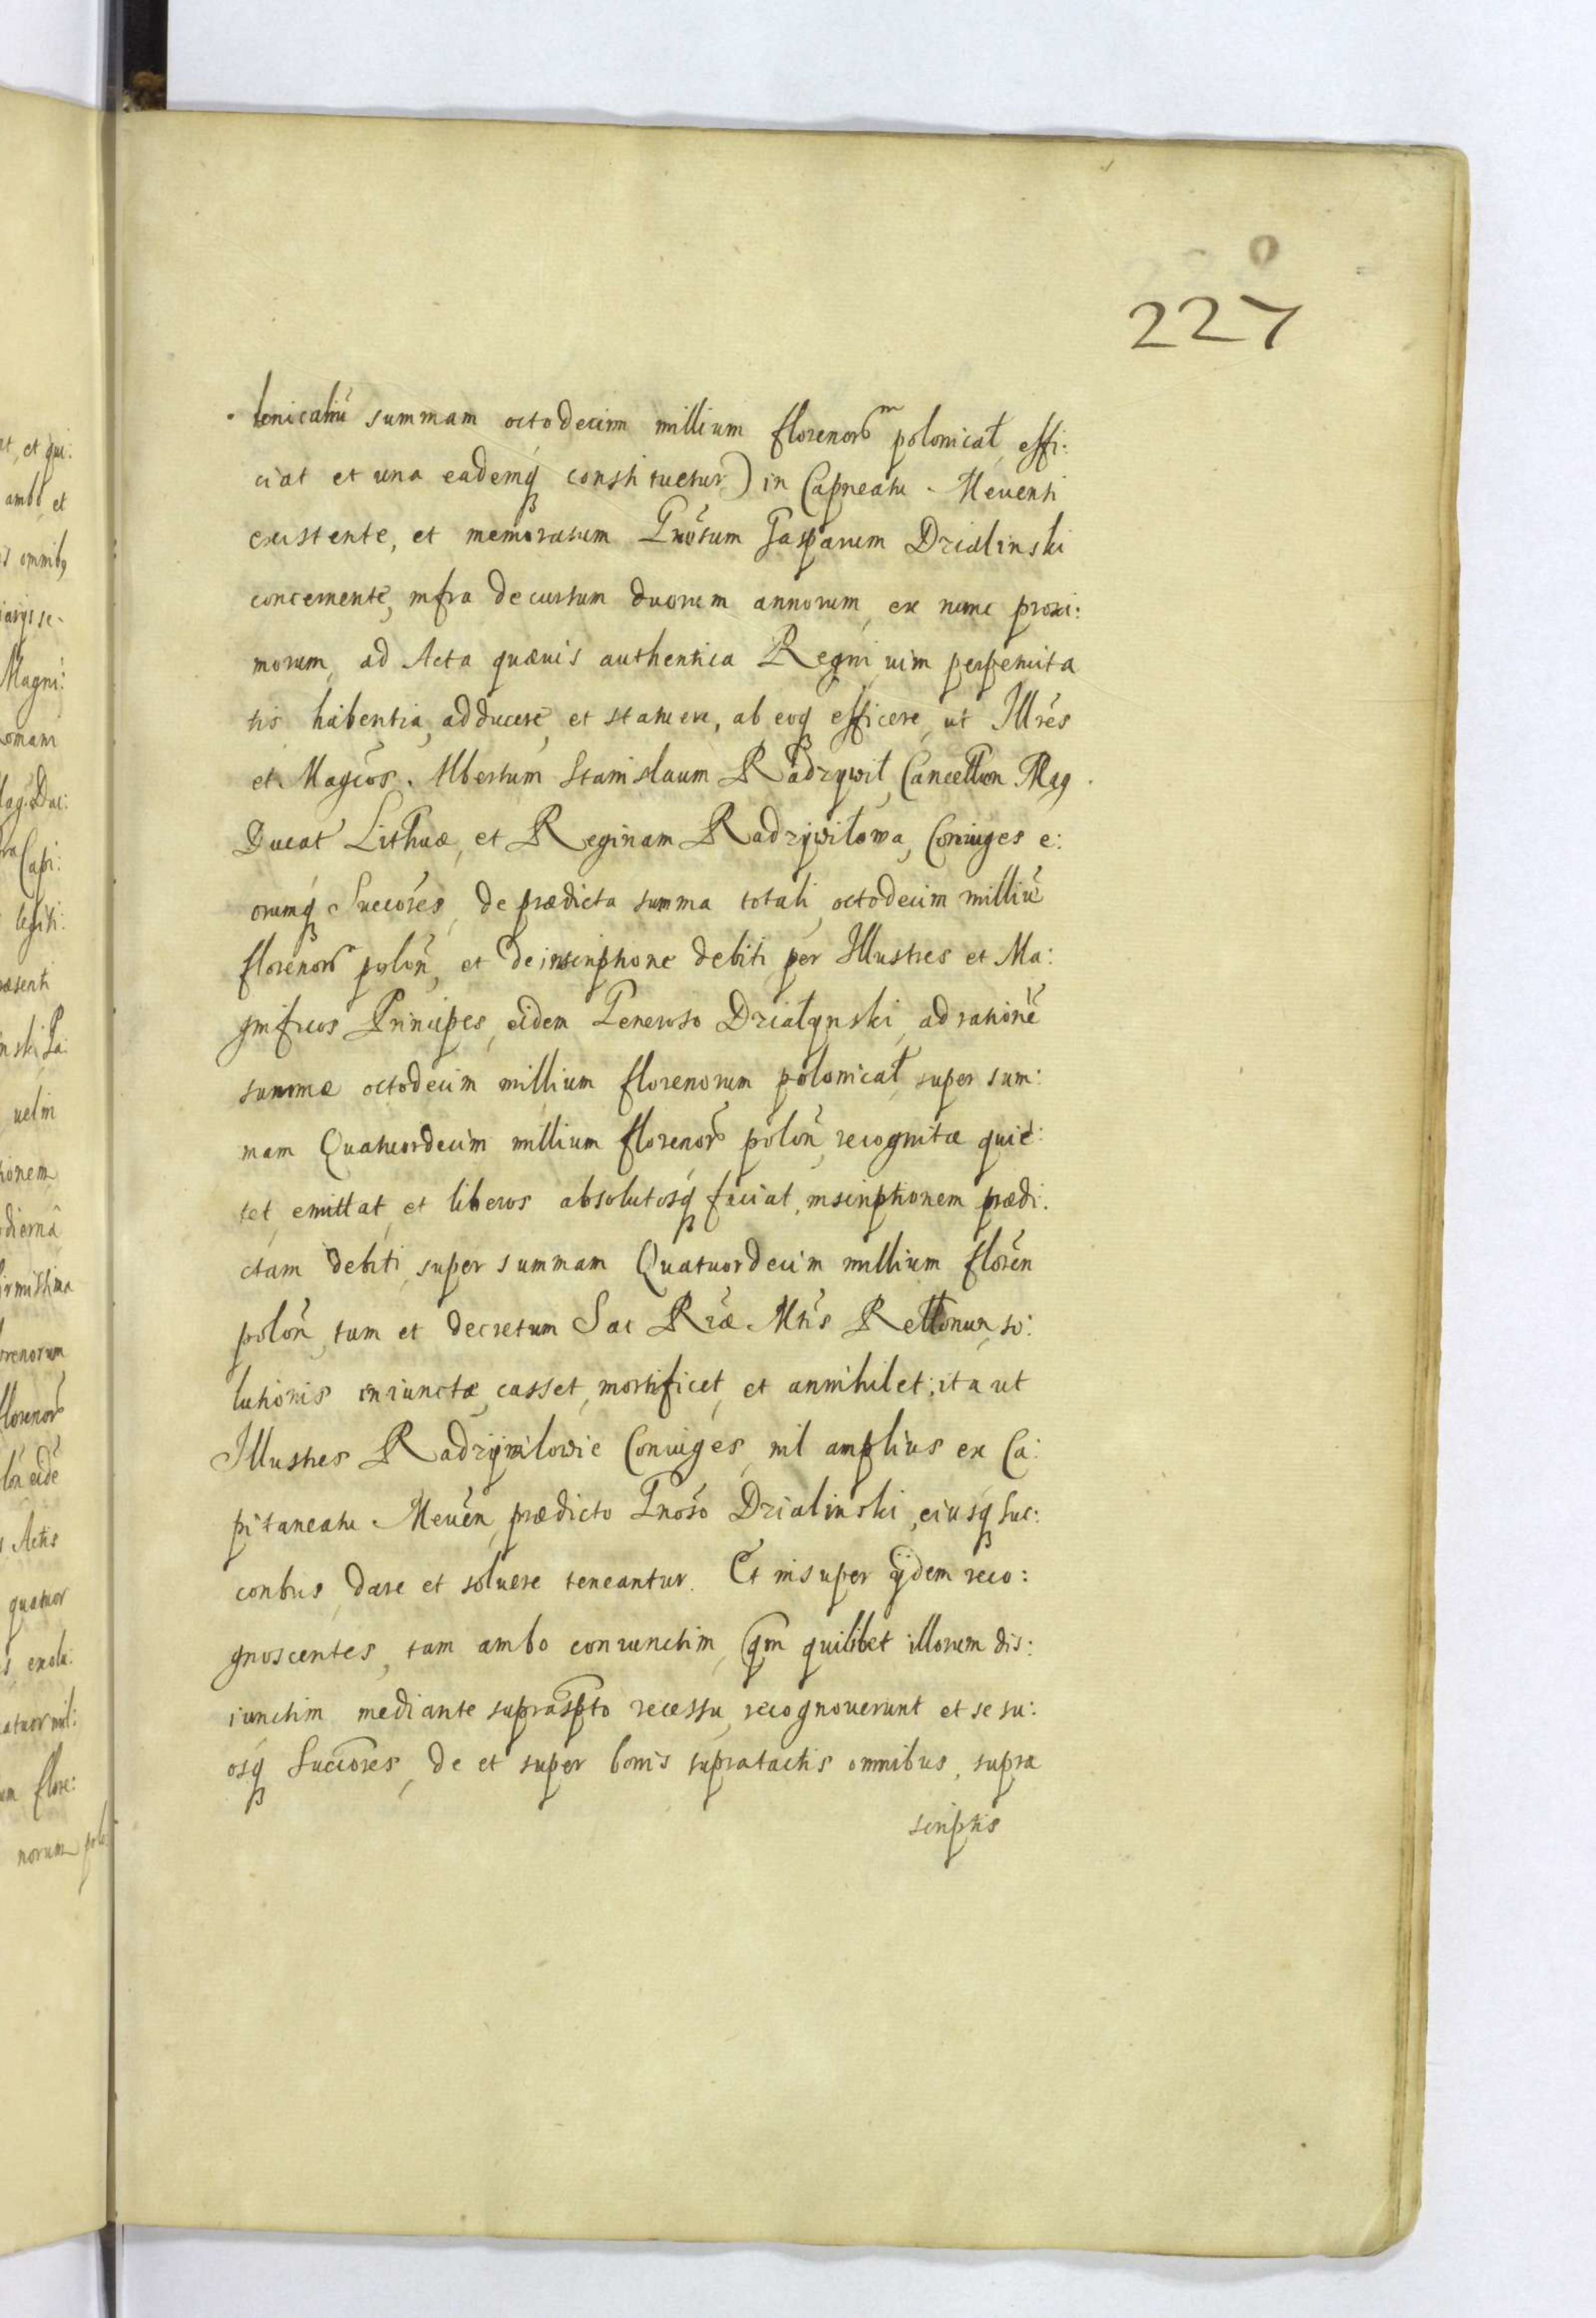 227
lonicaliũ summam octodecim millium florenorᵐ polonicał, effi:
ciat et una eademq́ constituetur) in Capneatu Meuensi
existente, et memoratum Gnõsum Gasparum Dzialinski
concernente, infra decursum duorum annorum, ex nunc proxi:
morum, ad Acta quæuis authentica Regni uim perpetuita
tis habentia, adducere, et statuere, ab eoq efficere, ut Illrẽs
et Magcõs Albertum Stanislaum Radzywił, Cancellom Mag
Ducat Lithuæ, et Reginam Radzywiłowa, Coniuges e:
orumq́ Succõres, de prædicta summa totali octodecim milliũ
florenorᵐ polon̄, et de inscriptione debiti per Illustres et Ma:
gnificos Principes, eidem Generoso Działynski, ad rationẽ
summæ octodecim millium florenorum polonicał, super sum:
mam Quatuordecim millium florenor polon̄, recognitæ quie:
tet, emittat, et liberos absolutosq́ faciat, inscriptionem prædi:
ctam debiti, super summam Quatuordecim millium floren̄
polon̄, tum et decretum Sac Rĩæ Mtĩs Rellonum, so:
lutionis iniunctæ, casset, mortificet, et annihilet; ita ut
Illustres Radzywilowie Coniuges, nil amplius ex Ca:
pitaneatu Meuen̄, prædicto Gnõso Dzialinski, eiusq́ suc:
coribus, dare et soluere teneantur. Et insuper ijdem reco:
gnoscentes, tam ambo coniunctim, qm̃ quilibet illorum dis:
iunctim mediante suprasp̃to recessu, recognouerunt et se su:
osq́ Succõres, de et super bonis supratactis omnibus, supra
scriptis